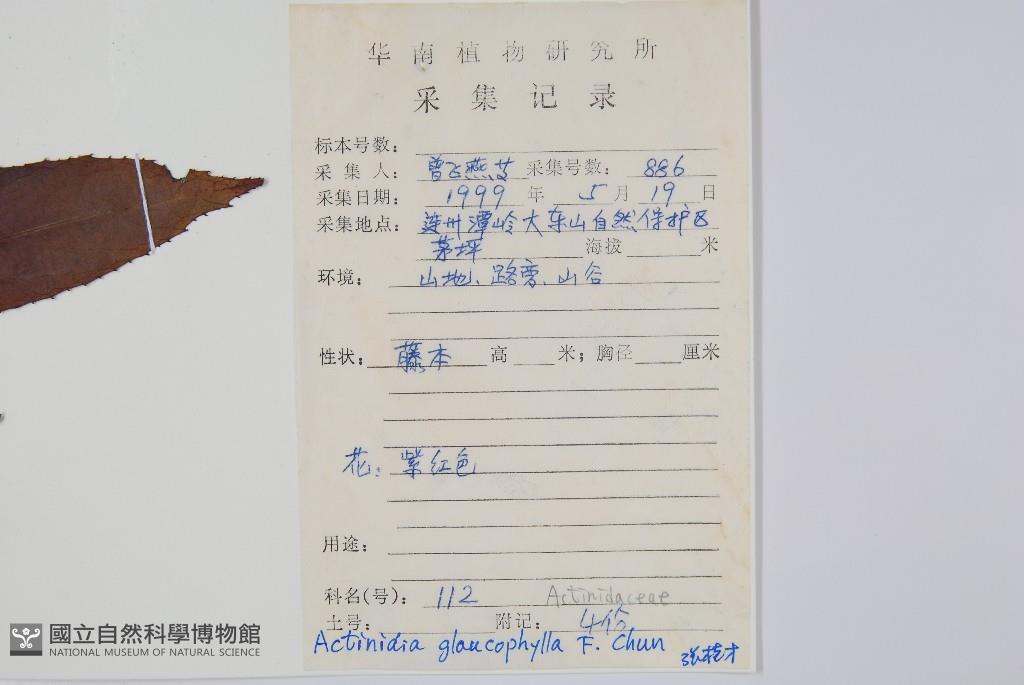 华南植物研究所
采集记录
标本号数：
采集人：曾飞燕 采集号数：886
采集日期：1999 年 5 月 19 日
采集地点：连州潭岭大东山自然保护区
茅坪 海拔 米
环境：山地、路旁、山谷
性状：藤本 高 米；胸径 厘米
花：紫红色
用途：
科名(号)：112 Actinidaceae
土号： 附记：4份
Actinidia glaucophylla F. Chun 张桂才
國立自然科學博物館
NATIONAL MUSEUM OF NATURAL SCIENCE